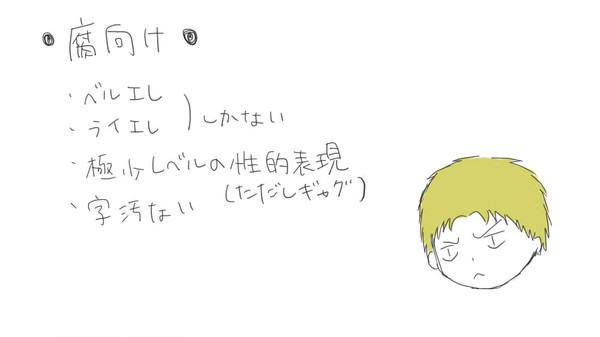 腐向け
・ベルエレ
・ライエレ
しかない
・極少レベルの性的表現
(ただしギャグ)
・字汚ない